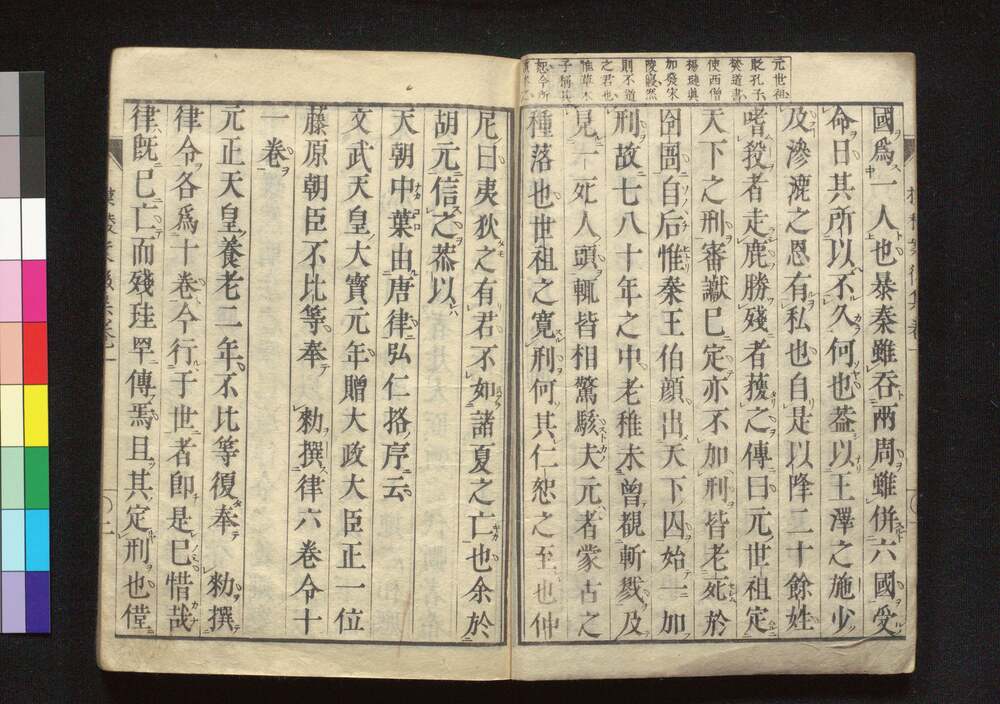 元世祖
貶孔子
焚道書
使西僧
楊璉真
加發宋
陵寢然
則不道
之君也
惟草木
子稱其
恕今所
國爲一人也暴秦雖吞兩周雖併六國受
命日其所以不久何也葢以王澤之施少
及滲漉之恩有私也自是以降二十餘姓
嗜殺者走鹿勝殘者獲之傳曰元世祖定
天下之刑審讞已定亦不加刑皆老死於
囹圄自后惟秦王伯顔出天下囚始一加
刑故七八十年之中老稚未曾覩斬戮及
見一死人頭輒皆相驚駭夫元者蒙古之
種落也世祖之寬刑何其仁恕之至也仲
尼曰夷狄之有君不如諸夏之亡也余於
胡元信之恭以
天朝中葉由唐律弘仁挌序云
文武天皇大寶元年贈大政大臣正一位
藤原朝臣不比等奉　勅撰律六卷令十
一卷
元正天皇養老二年不比等復奉　勅撰
律令各爲十卷今行于世者卽是已惜哉
律既已亡而殘珪罕傳焉且其定刑也僅
二